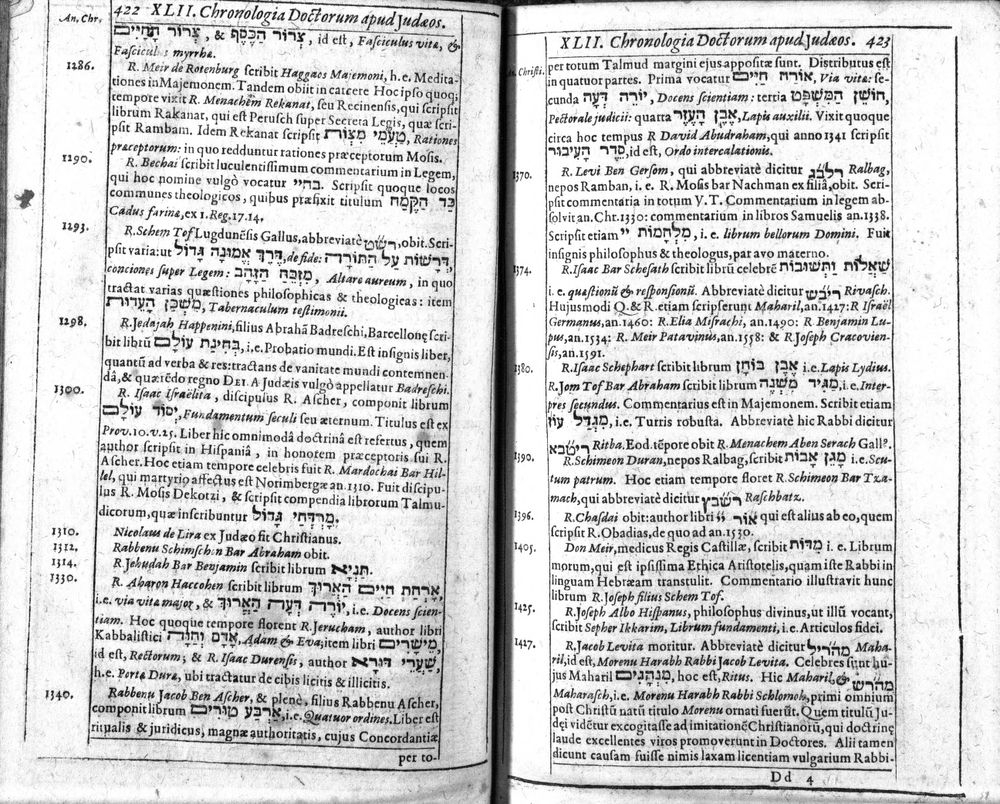 422 XLII. Chronologia Doctorum apud Judæos.
An. Chr.
צרור הכסף, & צרור החיים, id est, Fasciculus vitæ, &
Fasciculus myrrhæ.
1286. R. Meir de Rotenburg scribit Haggaos Majemoni, h.e. Medita-
tiones in Majemonem. Tandem obiit in carcere Hoc ipso quoq;
tempore vixit R. Menachem Rekanat, seu Recinensis, qui scripsit
librum Rakanat, qui est Perusch super Secreta Legis, quæ scri-
psit Rambam. Idem Rekanat scripsit טעמי מצות, Rationes
præceptorum: in quo redduntur rationes præceptorum Mosis.
1290. R. Bechai scribit luculentissimum commentarium in Legem,
qui hoc nomine vulgò vocatur בחיי. Scripsit quoque locos
communes theologicos, quibus præfixit titulum כד הקמח
Cadus farinæ, ex 1. Reg. 17. 14.
1293. R. Schem Tof Lugdunẽsis Gallus, abbreviatè רשט, obit. Scri-
psit varia: ut דרך אמונה גדול, de fide: דרשות על התורה
conciones super Legem: מזבח הזהב, Altare aureum, in quo
tractat varias quæstiones philosophicas & theologicas: item
משכן העדות, Tabernaculum testimonii.
1298. R. Jedajah Happenini, filius Abrahã Badreschi, Barcellonẽ scri-
bit librũ בחינת עולם, i.e. Probatio mundi. Est insignis liber,
quantũ ad verba & res: tractans de vanitate mundi contemnen-
dâ, & quærẽdo regno DEI. A Judæis vulgò appellatur Badreschi.
1300. R. Isaac Israëlita, discipulus R. Ascher, componit librum
יסוד עולם, Fundamentum seculi seu æternum. Titulus est ex
Prov. 10. v. 25. Liber hic omnimodâ doctrinâ est refertus, quem
author scripsit in Hispaniâ, in honorem præceptoris sui R.
Ascher. Hoc etiam tempore celebris fuit R. Mardochai Bar Hil-
lel, qui martyrio affectus est Norimbergæ an. 1310. Fuit discipu-
lus R. Mosis Dekotzi, & scripsit compendia librorum Talmu-
dicorum, quæ inscribuntur מרדחי גדול.
1310. Nicolaus de Lira ex Judæo fit Christianus.
1312. Rabbenu Schimschon Bar Abraham obit.
1314. R. Jehudah Bar Benjamin scribit librum תניא.
1330. R. Aharon Haccohen scribit librum ארחת חיים הארוך,
i.e. via vitæ major, & יורה דעה הארוך, i.e. Docens scien-
tiam. Hoc quoque tempore florent R. Jerucham, author libri
Kabbalistici אדם וחוה, Adam & Eva; item libri מישרים
id est, Rectorum; & R. Isaac Durensis, author שערי דורא,
h.e. Portæ Duræ, ubi tractatur de cibis licitis & illicitis.
1340. Rabbenu Jacob Ben Ascher, & plenè, filius Rabbenu Ascher,
componit librum ארבע טורים, i.e. Quatuor ordines. Liber est
ritualis & juridicus, magnæ authoritatis, cujus Concordantiæ
per to-
XLII. Chronologia Doctorum apud Judæos. 423
An. Christi.
per totum Talmud margini ejus appositæ sunt. Distributus est
in quatuor partes. Prima vocatur אורח חיים, Via vitæ: se-
cunda יורה דעה, Docens scientiam: tertia חושן המשפט,
Pectorale judicii: quatta אבן העזר, Lapis auxilii. Vixit quoque
circa hoc tempus R David Abudraham, qui anno 1341 scripsit
סדר העיבור, id est, Ordo intercalationis.
1370. R. Levi Ben Gersom, qui abbreviatè dicitur רלבג Ralbag,
nepos Ramban, i. e. R. Mosis bar Nachman ex filiâ, obit. Scri-
psit commentaria in totum V. T. Commentarium in legem ab-
solvit an. Chr. 1330: commentarium in libros Samuelis an. 1338.
Scripsit etiam מלחמות יי, i. e. librum bellorum Domini. Fuit
insignis philosophus & theologus, par avo materno.
1374. R. Isaac Bar Schesath scribit librũ celebrẽ שאלות ותשובות
i. e. quæstionũ & responsionũ. Abbreviatè dicitur ריבש Rivasch.
Hujusmodi Q. & R. etiam scripserunt Maharil, an. 1427: R Israël
Germanus, an. 1460: R. Elia Misrachi, an. 1490: R Benjamin Lu-
pus, an. 1534: R. Meir Patavinus, an. 1558: & R Joseph Cracovien-
sis, an. 1591.
1380. R. Isaac Schephart scribit librum אבן בוחן i.e. Lapis Lydius.
R. Jom Tof Bar Abraham scribit librum מגיד משנה, i.e. Inter-
pres secundus. Commentarius est in Majemonem. Scribit etiam
מגדל עוז, i.e. Turris robusta. Abbreviatè hic Rabbi dicitur
ריטבא Ritba. Eod. tẽpore obit R. Menachem Aben Serach Gall9.
1390. R. Schimeon Duran, nepos Ralbag, scribit מגן אבות i.e. Scu-
tum patrum. Hoc etiam tempore floret R. Schimeon Bar Tza-
mach, qui abbreviatè dicitur רשבץ Raschbatz.
1396. R. Chasdai obit: author libri אור יי qui est alius ab eo, quem
scripsit R. Obadias, de quo ad an. 1530.
1405. Don Meir, medicus Regis Castillæ, scribit מדות i. e. Librum
morum, qui est ipsissima Ethica Aristotelis, quam iste Rabbi in
linguam Hebræam transtulit. Commentario illustravit hunc
librum R. Joseph filius Schem Tof.
1425. R. Joseph Albo Hispanus, philosophus divinus, ut illũ vocant,
scribit Sepher Ikkarim, Librum fundamenti, i.e. Articulos fidei.
1427. R. Jacob Levita moritur. Abbreviatè dicitur מהריל Maha-
ril, id est, Morenu Harabh Rabbi Jacob Levita. Celebres sunt hu-
jus Maharil מנהגים, hoc est, Ritus. Hic Maharil, & מהרש
Maharasch, i.e. Morenu Harabh Rabbi Schlomoh, primi omnium
post Christũ natũ titulo Morenu ornati fuerũt. Quem titulũ Ju-
dęi vidẽtur excogitasse ad imitationẽ Christianorũ, qui doctrinę
laude excellentes viros promoverunt in Doctores. Alii tamen
dicunt causam fuisse nimis laxam licentiam vulgarium Rabbi-
Dd 4